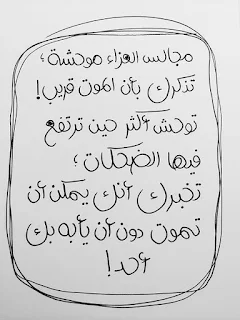 مجالس العزاء موحشة ؛
تذكرك بأن الموت قريب!
توحش أكثر حين ترتفع
فيها الضحكات ؛
تخبرك أنك يمكن أن
تموت دون أن يأبه بك
أحد!